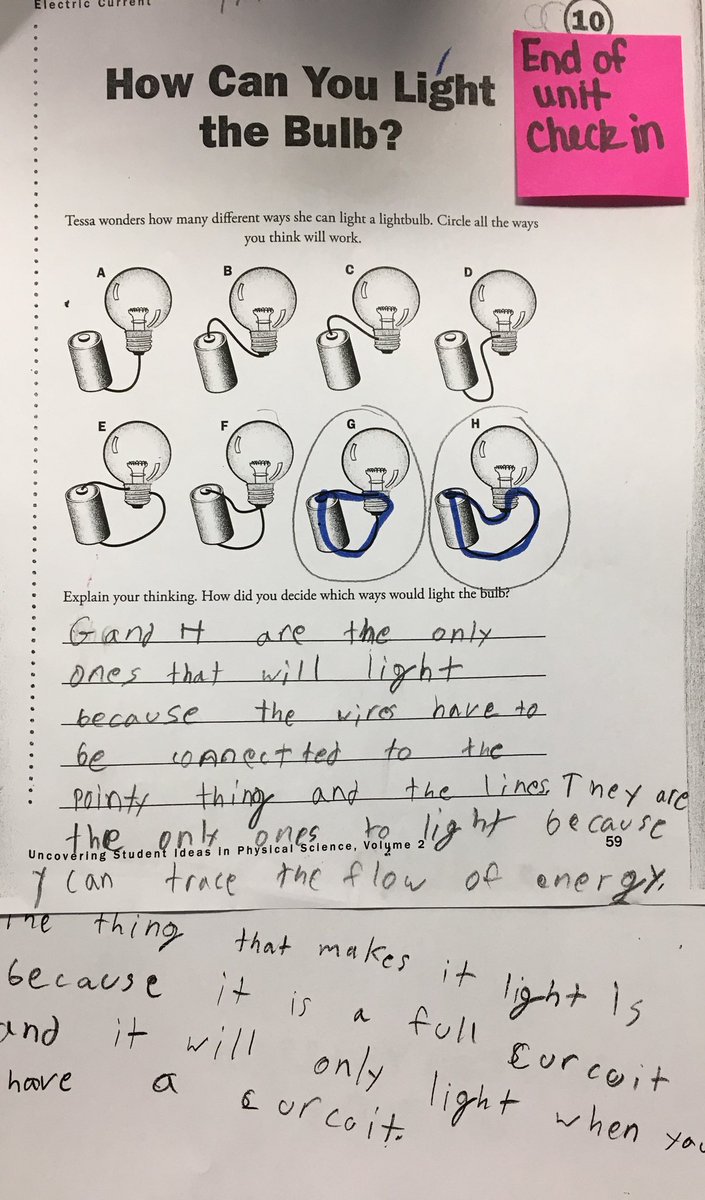 Electric Current
10
How Can You Light
the Bulb?
End of
unit
check in
Tessa wonders how many different ways she can light a lightbulb. Circle all the ways
you think will work.
A B C D
E F G H
Explain your thinking. How did you decide which ways would light the bulb?
G and H are the only
ones that will light
because the wires have to
be connectted to the
pointy thing and the lines. They are
the only ones to light because
Uncovering Student Ideas in Physical Science, Volume 2
59
I can trace the flow of energy.
The thing that makes it light is
because it is a full curcoit
and it will only light when you
have a curcoit.